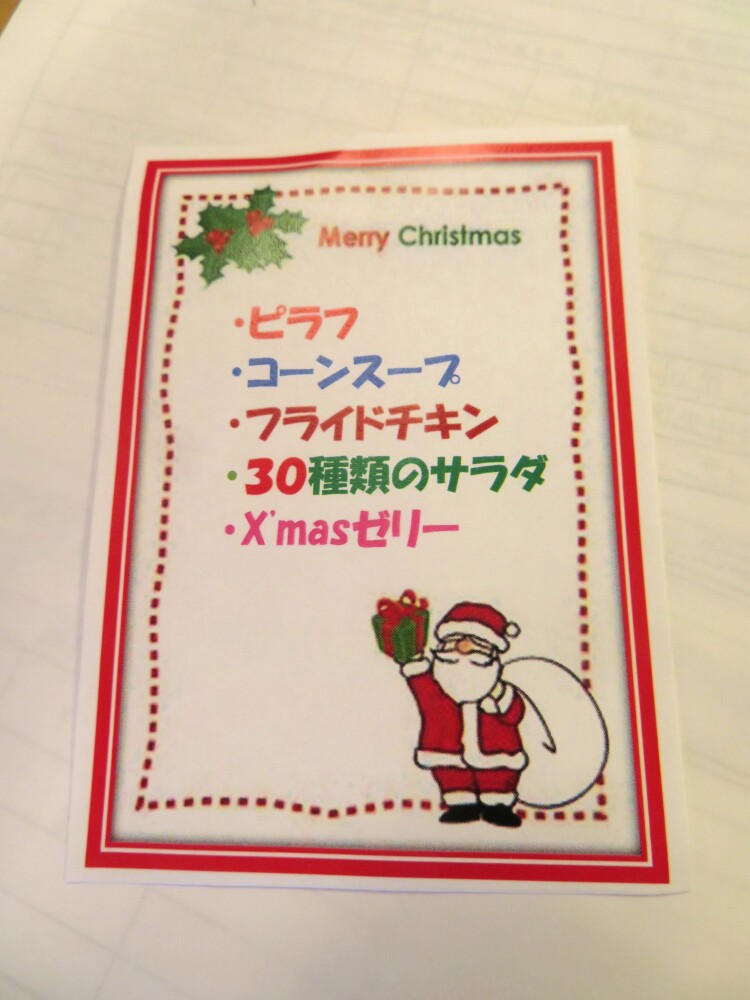 Merry Christmas
・ピラフ
・コーンスープ
・フライドチキン
・30種類のサラダ
・X'masゼリー